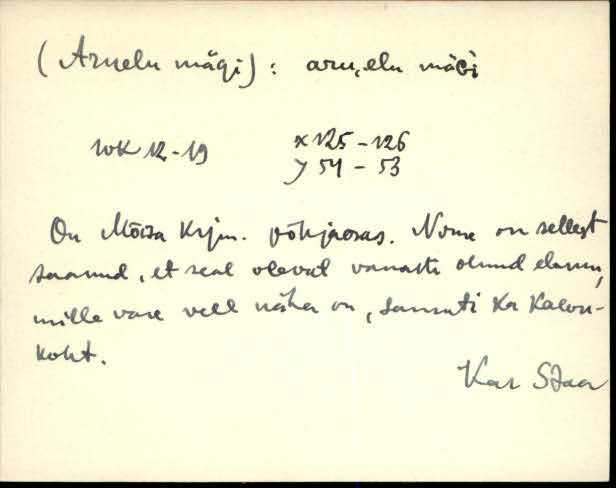 (Aruelu mägi): aru,elu mäGi
WK 12-19 x 125-126
y 54-53
On Mõisa krjm. põhjaosas. Nime on sellest
saanud, et seal olevat vanasti olnud elamu,
mille vare veel näha on, samuti ka kaevu-
koht.
Kar